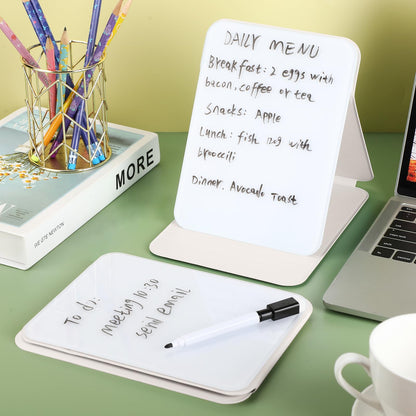 DAILY MENU
Breakfast: 2 eggs with
bacon, coffee or tea
Snacks: Apple
Lunch: fish 120g with
broccili
Dinner. Avocado Toast
MORE
ERIN NEWTON
To do:
meeting 10:30
send email